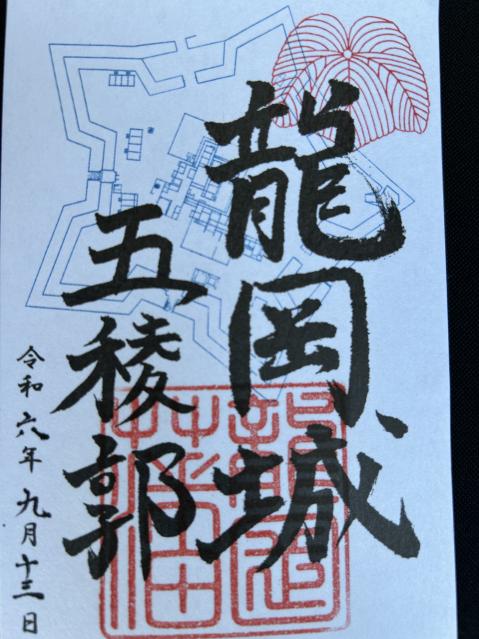 龍岡城
五稜郭
令和六年九月十三日